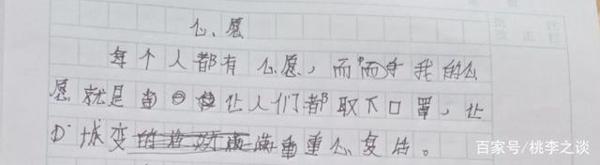 心愿
每个人都有心愿，而我的心
愿就是让人们都取下口罩，让
城变重心复活。
百家号/桃李之谈